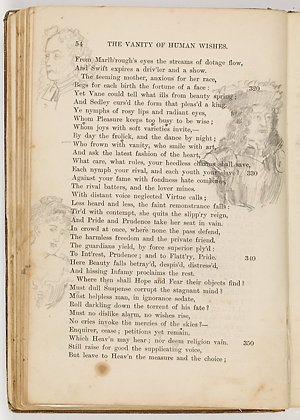 54 THE VANITY OF HUMAN WISHES.
From Marlb'rough's eyes the streams of dotage flow,
And Swift expires a driv'ler and a show.
The teeming mother, anxious for her race,
Begs for each birth the fortune of a face: 320
Yet Vane could tell what ills from beauty spring;
And Sedley curs'd the form that pleas'd a king.
Ye nymphs of rosy lips and radiant eyes,
Whom Pleasure keeps too busy to be wise;
Whom joys with soft varieties invite,—
By day the frolick, and the dance by night;
Who frown with vanity, who smile with art,
And ask the latest fashion of the heart,
What care, what rules, your heedless charms shall save,
Each nymph your rival, and each youth your slave? 330
Against your fame with fondness hate combines,
The rival batters, and the lover mines.
With distant voice neglected Virtue calls;
Less heard and less, the faint remonstrance falls;
Tir'd with contempt, she quits the slipp'ry reign,
And Pride and Prudence take her seat in vain.
In crowd at once, where none the pass defend,
The harmless freedom and the private friend.
The guardians yield, by force superior ply'd:
To Int'rest, Prudence; and to Flatt'ry, Pride. 340
Here Beauty falls betray'd, despis'd, distress'd,
And hissing Infamy proclaims the rest.
Where then shall Hope and Fear their objects find?
Must dull Suspense corrupt the stagnant mind?
Must helpless man, in ignorance sedate,
Roll darkling down the torrent of his fate?
Must no dislike alarm, no wishes rise,
No cries invoke the mercies of the skies?—
Enquirer, cease; petitions yet remain.
Which Heav'n may hear; nor deem religion vain. 350
Still raise for good the supplicating voice,
But leave to Heav'n the measure and the choice;